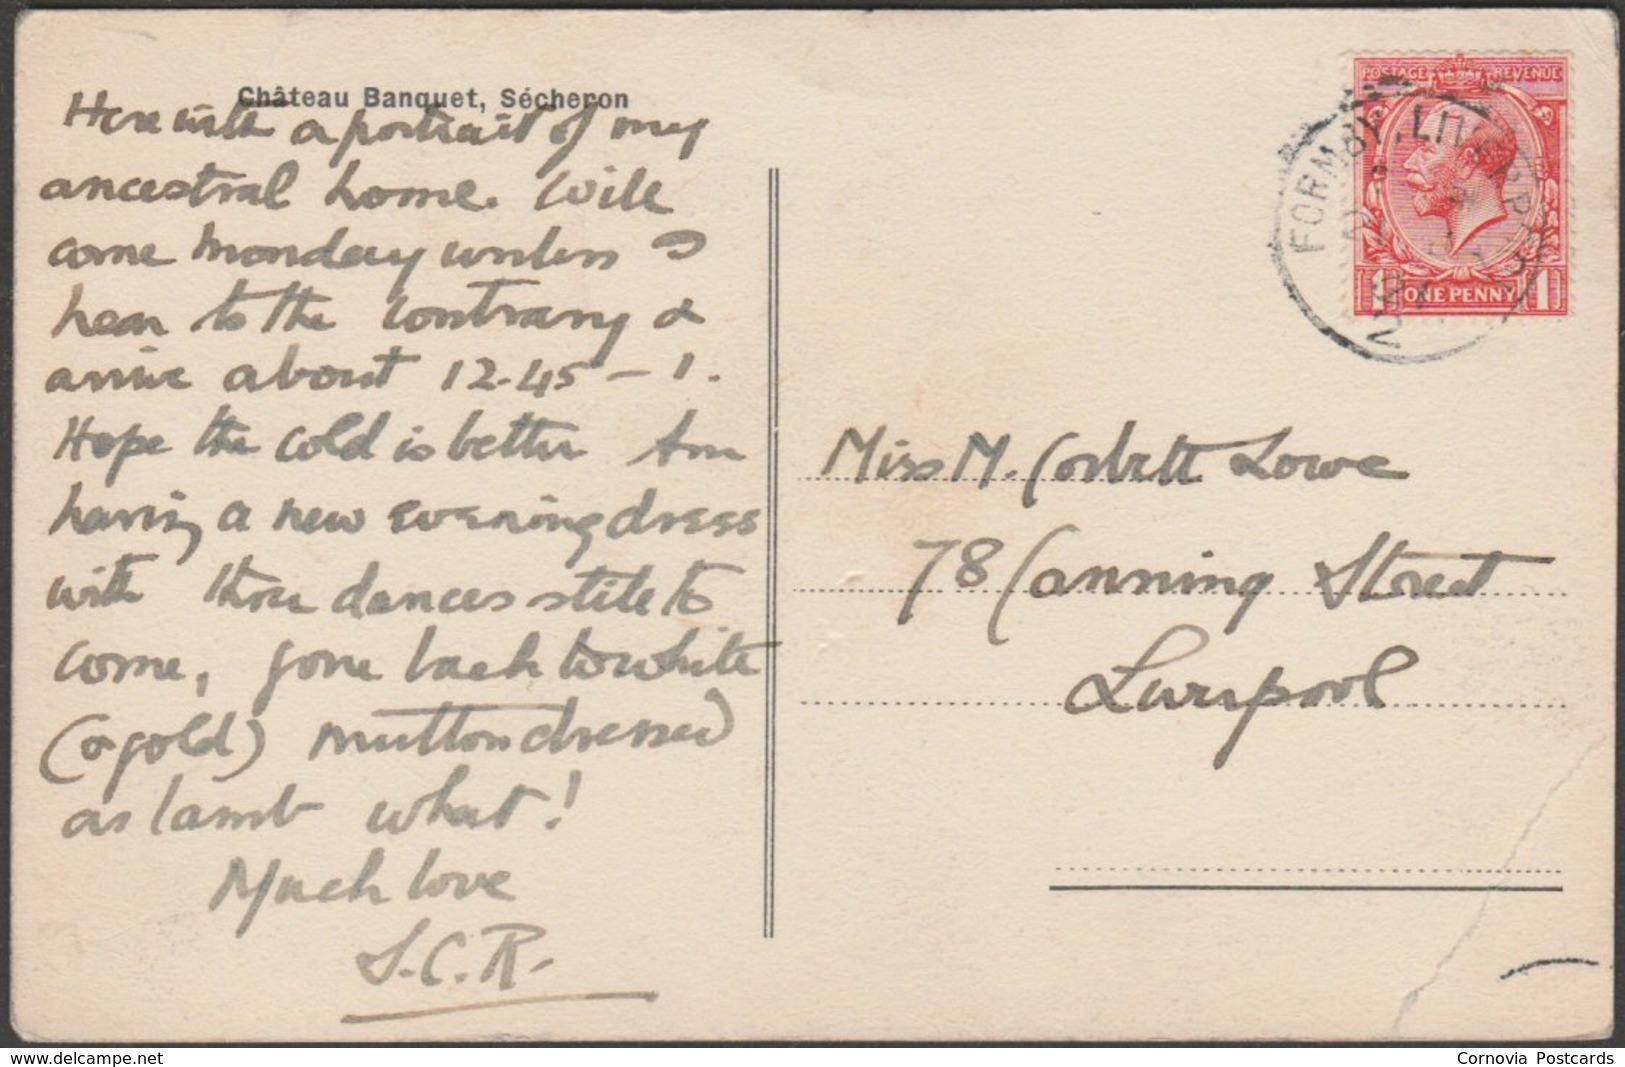 Château Banquet, Sécheron
Herewith a portrait of my
ancestral home. Will
come Monday unless I
hear to the contrary &
arrive about 12.45 – 1.
Hope the cold is better Am
having a new evening dress
with three dances still to
come, gone back to white
(& gold) mutton dressed
as lamb what!
Much love
S.C.R.
POSTAGE REVENUE
1 ONE PENNY 1
FORMBY. LIVERPOOL
Miss M. Corbett Lowe
78 Canning Street
Liverpool
www.delcampe.net
Cornovia Postcards